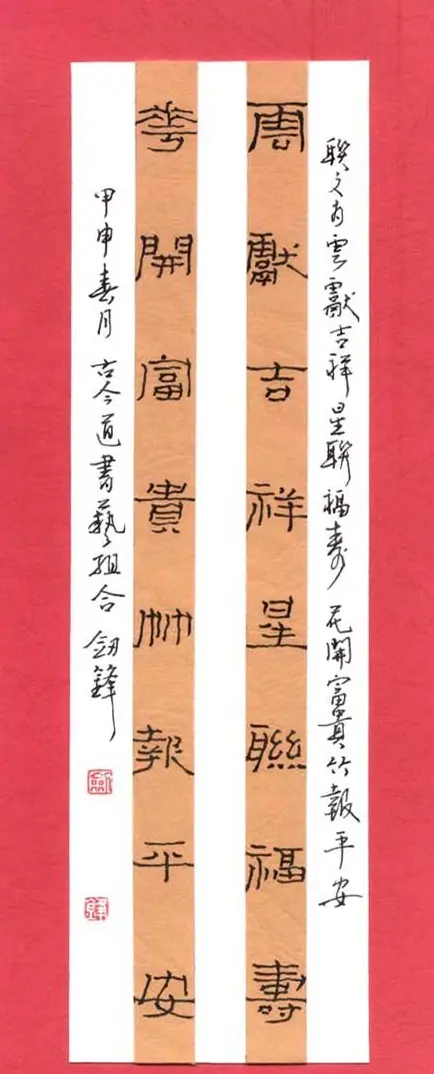 聯文为雲獻吉祥星聯福壽 花開富貴竹報平安
雲獻吉祥星聯福壽
華開富貴竹報平安
甲申春月 古今道書藝組合 釰鋒